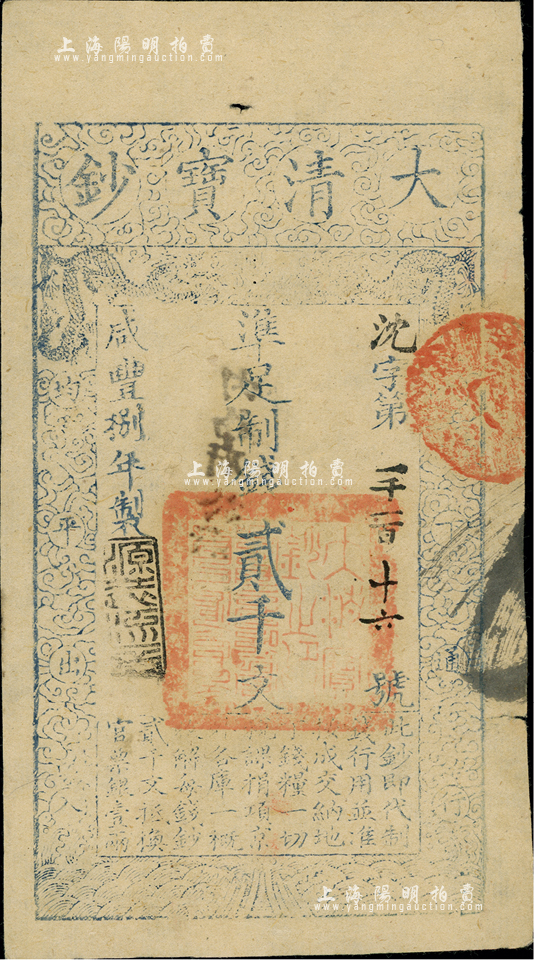 上海陽明拍賣
www.yangmingauction.com
大清寶鈔
沈字第 一千一百十六 號
準足制錢貳千文
咸豐捌年製
上海陽明拍賣
www.yangmingauction.com
此鈔即代制
錢行用並准
成交納地
錢糧一切
課捐項京
各庫一概
解每錢鈔
貳千文抵換
官票銀壹兩
均平出入
通行
源遠流長
上海陽明拍賣
www.yangmingauction.com